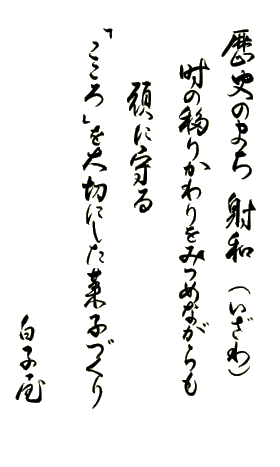 歴史のまち 射和 （いざわ）
時の移りかわりをみつめながらも
頑に守る
「こころ」を大切にした菓子づくり
白子屋